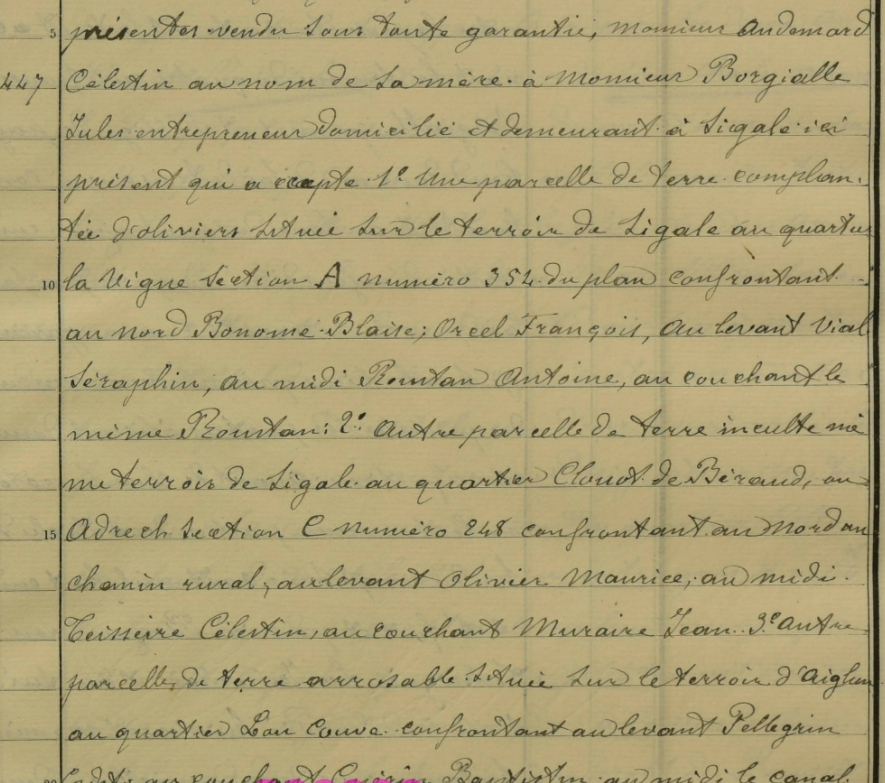 5 présentes vendu sous toute garantie, monsieur Audemard
447 Célestin au nom de sa mère à Monsieur Borgialle
Jules entrepreneur domicilié et demeurant à Sigale ici
présent qui accepte 1º Une parcelle de terre complan-
tée d'oliviers située sur le terroir de Sigale au quartier
10 la Vigne section A numéro 354 du plan confrontant
au nord Bonome Blaise; Orcel François, au levant Vial
Séraphin, au midi Roustan Antoine, au couchant le
même Roustan: 2º Autre parcelle de terre inculte mê
me terroir de Sigale au quartier Clouot de Béraud, ou
15 Adrech section C numéro 248 confrontant au nord un
chemin rural, au levant Olivier Maurice, au midi
Teisseire Célestin, au couchant Muraire Jean. 3º Autre
parcelle de terre arrosable située sur le terroir d'Aiglun
au quartier Lou Couve confrontant au levant Pellegrin
au couchant Guérin Baptistin au midi le canal